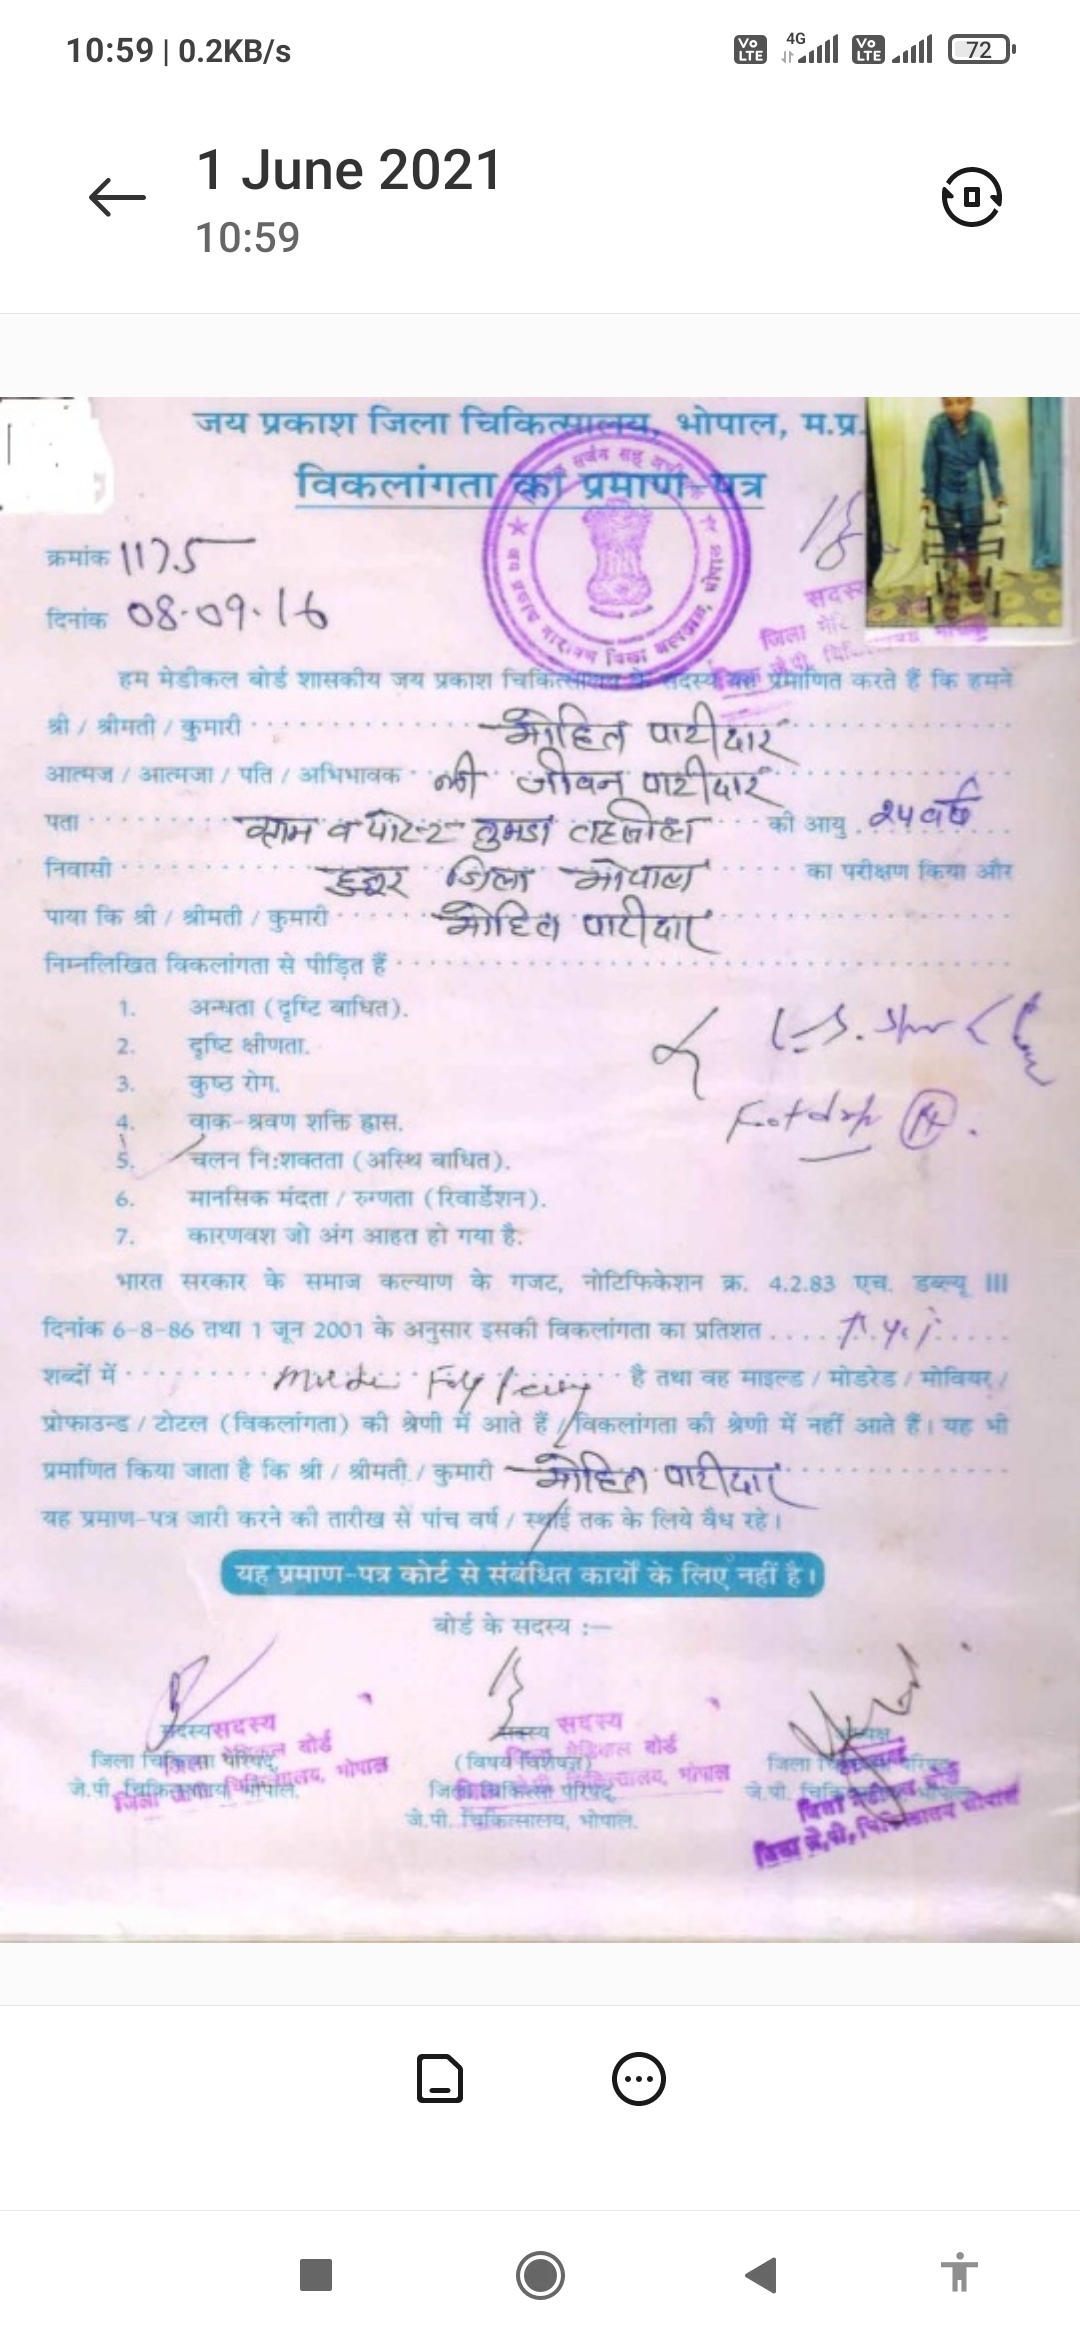 10:59 | 0.2KB/s
Vo LTE 4G Vo LTE 72
1 June 2021
10:59
जय प्रकाश जिला चिकित्सालय, भोपाल, म.प्र.
विकलांगता का प्रमाण-पत्र
क्रमांक 1175
दिनांक 08.09.16
सदस्य
जिला
हम मेडीकल बोर्ड शासकीय जय प्रकाश चिकित्सालय के सदस्य यह प्रमाणित करते हैं कि हमने
श्री / श्रीमती / कुमारी मोहित पाटीदार
आत्मज / आत्मजा / पति / अभिभावक श्री जीवन पाटीदार
पता ग्राम व पोस्ट तुमडा तहसील की आयु 24 वर्ष
निवासी हुजूर जिला भोपाल का परीक्षण किया और
पाया कि श्री / श्रीमती / कुमारी मोहित पाटीदार
निम्नलिखित विकलांगता से पीड़ित हैं
1. अन्धता (दृष्टि बाधित).
2. दृष्टि क्षीणता.
3. कुष्ठ रोग.
4. वाक-श्रवण शक्ति ह्रास.
5. चलन नि:शक्तता (अस्थि बाधित).
6. मानसिक मंदता / रुग्णता (रिवार्डेशन).
7. कारणवश जो अंग आहत हो गया है.
Foot drop Rt.
भारत सरकार के समाज कल्याण के गजट, नोटिफिकेशन क्र. 4.2.83 एच. डब्ल्यू III
दिनांक 6-8-86 तथा 1 जून 2001 के अनुसार इसकी विकलांगता का प्रतिशत
शब्दों में है तथा वह माइल्ड / मोडरेड / मोवियर /
प्रोफाउन्ड / टोटल (विकलांगता) की श्रेणी में आते हैं / विकलांगता की श्रेणी में नहीं आते हैं। यह भी
प्रमाणित किया जाता है कि श्री / श्रीमती / कुमारी मोहित पाटीदार
यह प्रमाण-पत्र जारी करने की तारीख से पांच वर्ष / स्थाई तक के लिये वैध रहे।
यह प्रमाण-पत्र कोर्ट से संबंधित कार्यों के लिए नहीं है।
बोर्ड के सदस्य :-
सदस्य सदस्य
जिला चिकित्सा परिषद्,
जे.पी. चिकित्सालय भोपाल.
सदस्य सदस्य
(विषय विशेषज्ञ)
जिला चिकित्सा परिषद्,
जे.पी. चिकित्सालय, भोपाल.
अध्यक्ष
जिला चिकित्सा परिषद्
जे.पी. चिकित्सालय भोपाल